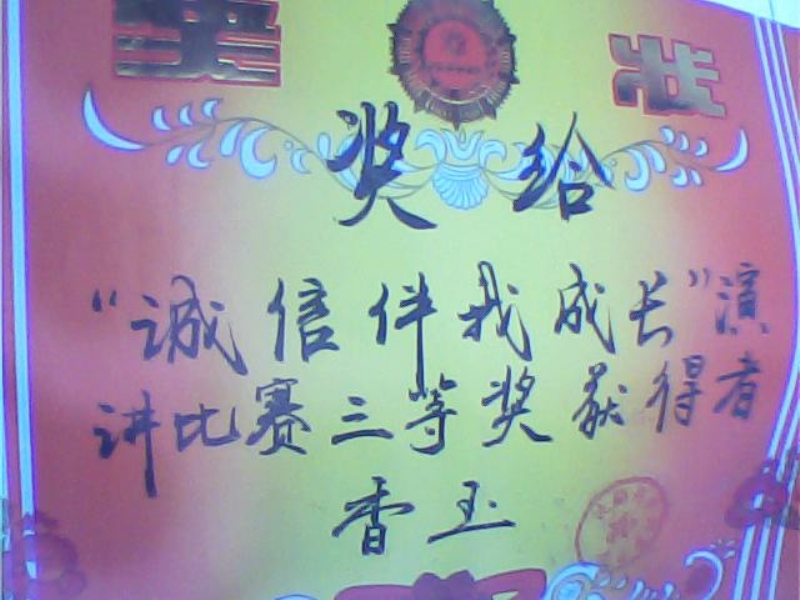 奖状
奖给
“诚信伴我成长”演
讲比赛三等奖获得者
香玉